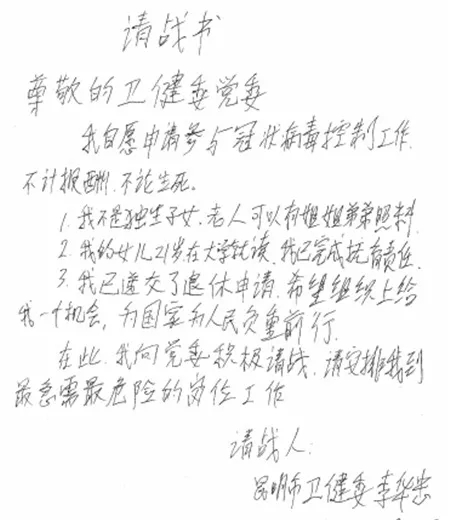 请战书
尊敬的卫健委党委
我自愿申请参与冠状病毒控制工作.
不计报酬.不论生死。
1.我不是独生子女.老人可以有姐姐弟弟照料.
2.我的女儿21岁在大学就读.我已完成抚育责任.
3.我已递交了退休申请.希望组织上给
我一个机会,为国家为人民负重前行.
在此.我向党委积极请战.请安排我到
最急需最危险的岗位工作
请战人:
昆明市卫健委李华忠